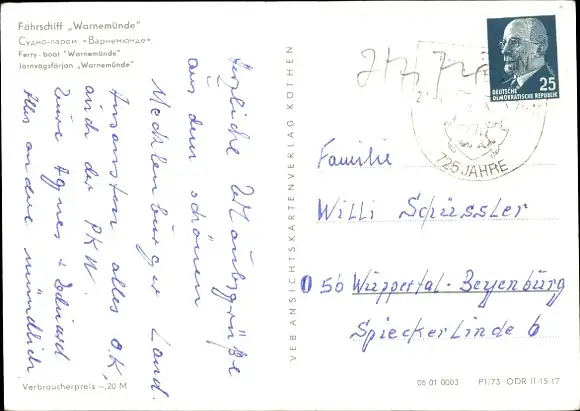 Fährschiff „Warnemünde"
Судно-паром «Варнемюнде»
Ferry-boat "Warnemünde"
Järnvägsfärjan „Warnemünde"
Herzliche Urlaubsgrüße
aus dem schönen
Mecklenburger Land.
Ansonsten alles OK,
auch der PKW.
Eure Agnes + Eduard
Alles andere mündlich
Verbraucherpreis -,20 M
VEB ANSICHTSKARTENVERLAG KÖTHEN
25
DEUTSCHE
DEMOKRATISCHE REPUBLIK
725 JAHRE
Familie
Willi Schüssler
56 Wuppertal-Beyenburg
Spieckerlinde 6
06 01 0003 P1/73 ODR II-15-17